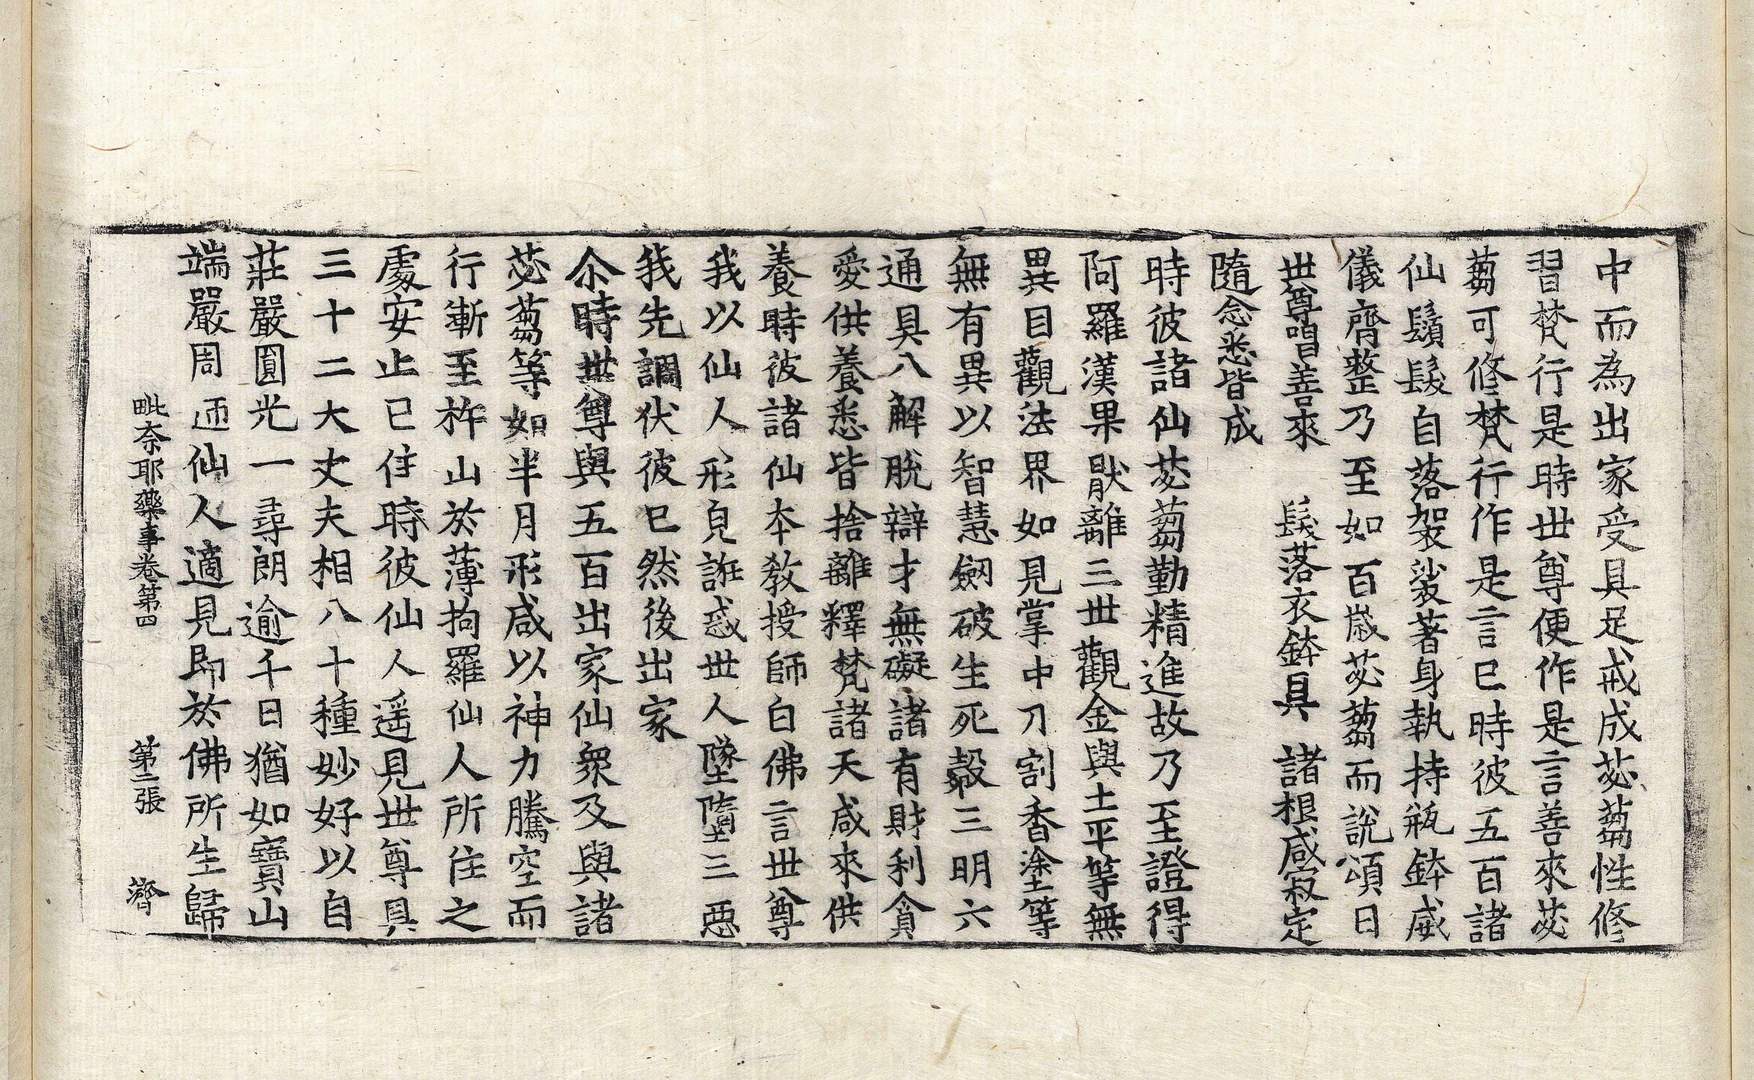 中而為出家受具足戒成苾蒭性修
習梵行是時世尊便作是言善來苾
蒭可修梵行作是言已時彼五百諸
仙鬚髮自落袈裟著身執持瓶鉢威
儀齊整乃至如百歲苾蒭而說頌曰
世尊唱善來　髮落衣鉢具　諸根咸寂定
隨念悉皆成
時彼諸仙苾蒭勤精進故乃至證得
阿羅漢果猒離三世觀金與土平等無
異目觀法界如見掌中刀割香塗等
無有異以智慧劒破生死㲉三明六
通具八解脫辯才無礙諸有財利貪
愛供養悉皆捨離釋梵諸天咸來供
養時彼諸仙本教授師白佛言世尊
我以仙人形皃誑惑世人墜墮三惡
我先調伏彼已然後出家
尒時世尊與五百出家仙衆及與諸
苾蒭等如半月形咸以神力騰空而
行漸至杵山於薄拘羅仙人所住之
處安止已住時彼仙人遥見世尊具
三十二大丈夫相八十種妙好以自
莊嚴圓光一尋朗逾千日猶如寶山
端嚴周迊仙人適見即於佛所生歸
毗奈耶藥事卷第四　第二張　濟